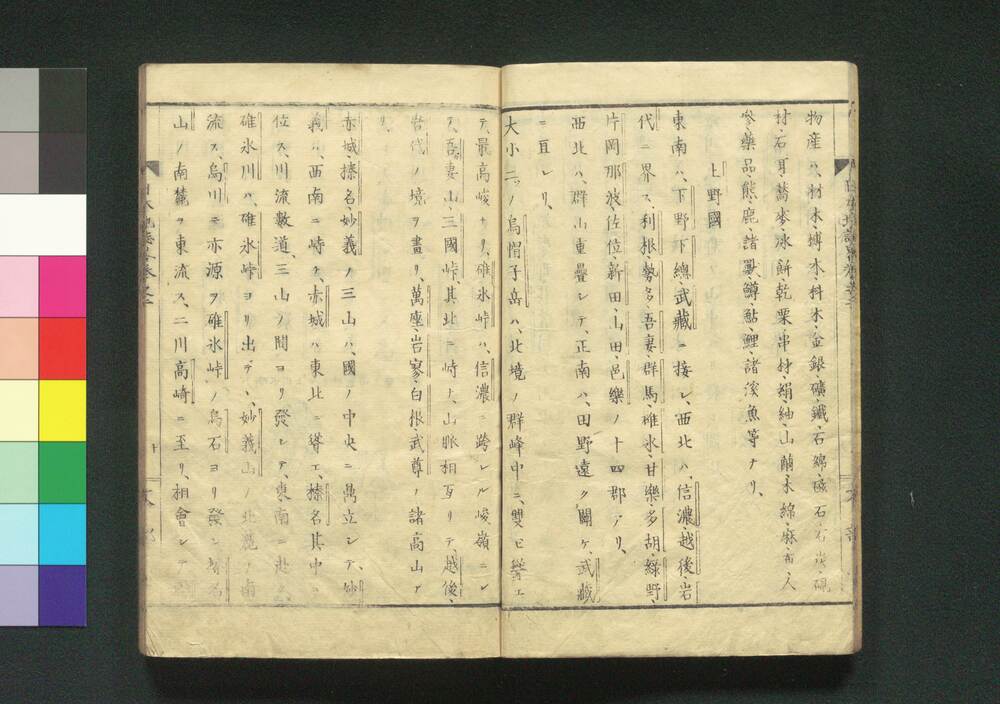 物産ハ、材木、搏木、料木、金、銀、礦、鐵、石綿、磁石、石炭、硯
材、石耳、蕎麥、氷餅、乾栗、串材、絹、紬、山繭、木綿、麻布、人
參、藥品、熊、鹿、諸獸、鱒、鮎、鯉、諸溪魚等ナリ、
上野國
東南ハ、下野、下總、武藏ニ接シ、西北ハ、信濃、越後、岩
代ニ界ス、利根、勢多、吾妻、群馬、碓氷、甘樂、多胡、綠野、
片岡、那波、佐位、新田、山田、邑樂ノ十四郡アリ、
西北ハ、群山重疊シテ、正南ハ、田野遠ク開ケ、武藏
ニ亘レリ、
大小二ノ烏帽子岳ハ、北境ノ群峰中ニ、雙ビ聳エ
テ、最高峻ナリ、碓氷峠ハ、信濃ニ跨レル峻嶺ニシ
テ、吾妻山、三國峠、其北ニ峙チ、山脈相亙リテ、越後、
岩代ノ境ヲ畫リ、萬座、岩寥、白根、武尊ノ諸高山ア
リ、
赤城、榛名、妙義ノ三山ハ、國ノ中央ニ鼎立シテ、妙
義ハ、西南ニ峙チ、赤城ハ東北ニ聳エ、榛名其中ニ
位ス、川流數道、三山ノ間ヨリ發シテ、東南ニ赴ク、
碓氷川ハ、碓氷峠ヨリ出テ、妙義山ノ北麓ヲ南
流ス、烏川モ亦源ヲ碓氷峠ノ烏石ヨリ發シ、榛名
山ノ南麓ヲ東流ス、二川高崎ニ至リ、相會シテ
日本地誌略卷之二
十
文部